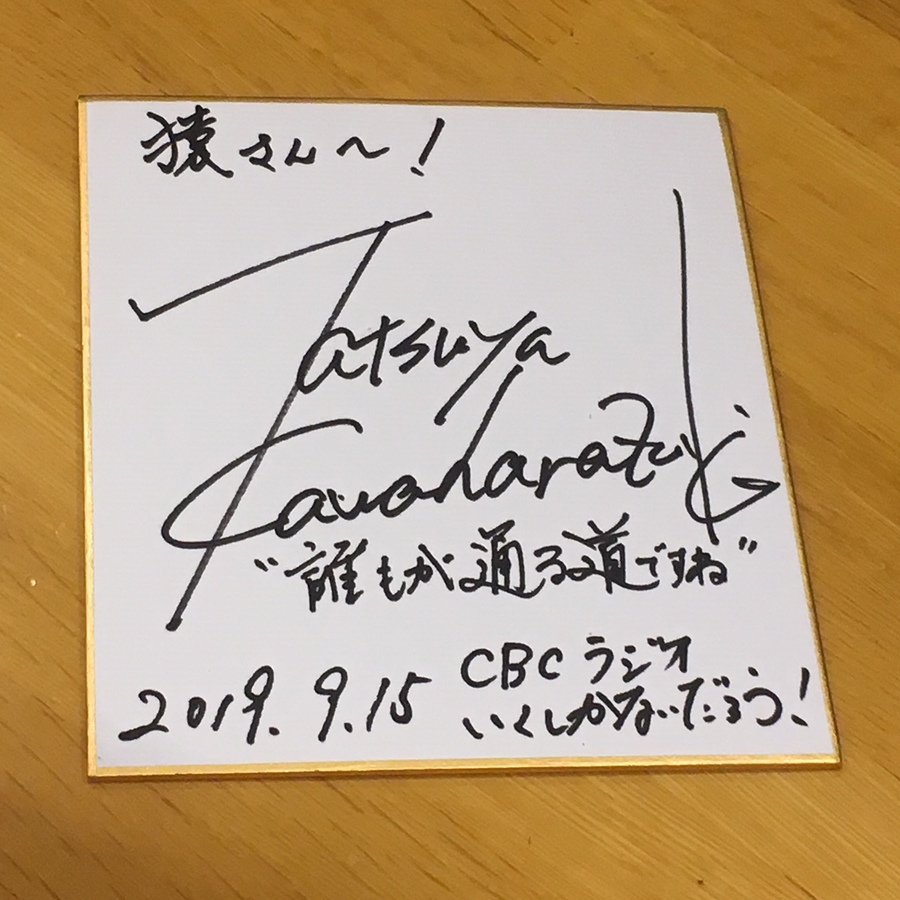 猿さん〜!
Tatsuya
Kawaharazuki
"誰もが通る道ですね"
2019.9.15
CBCラジオ
いくしかないだろう!